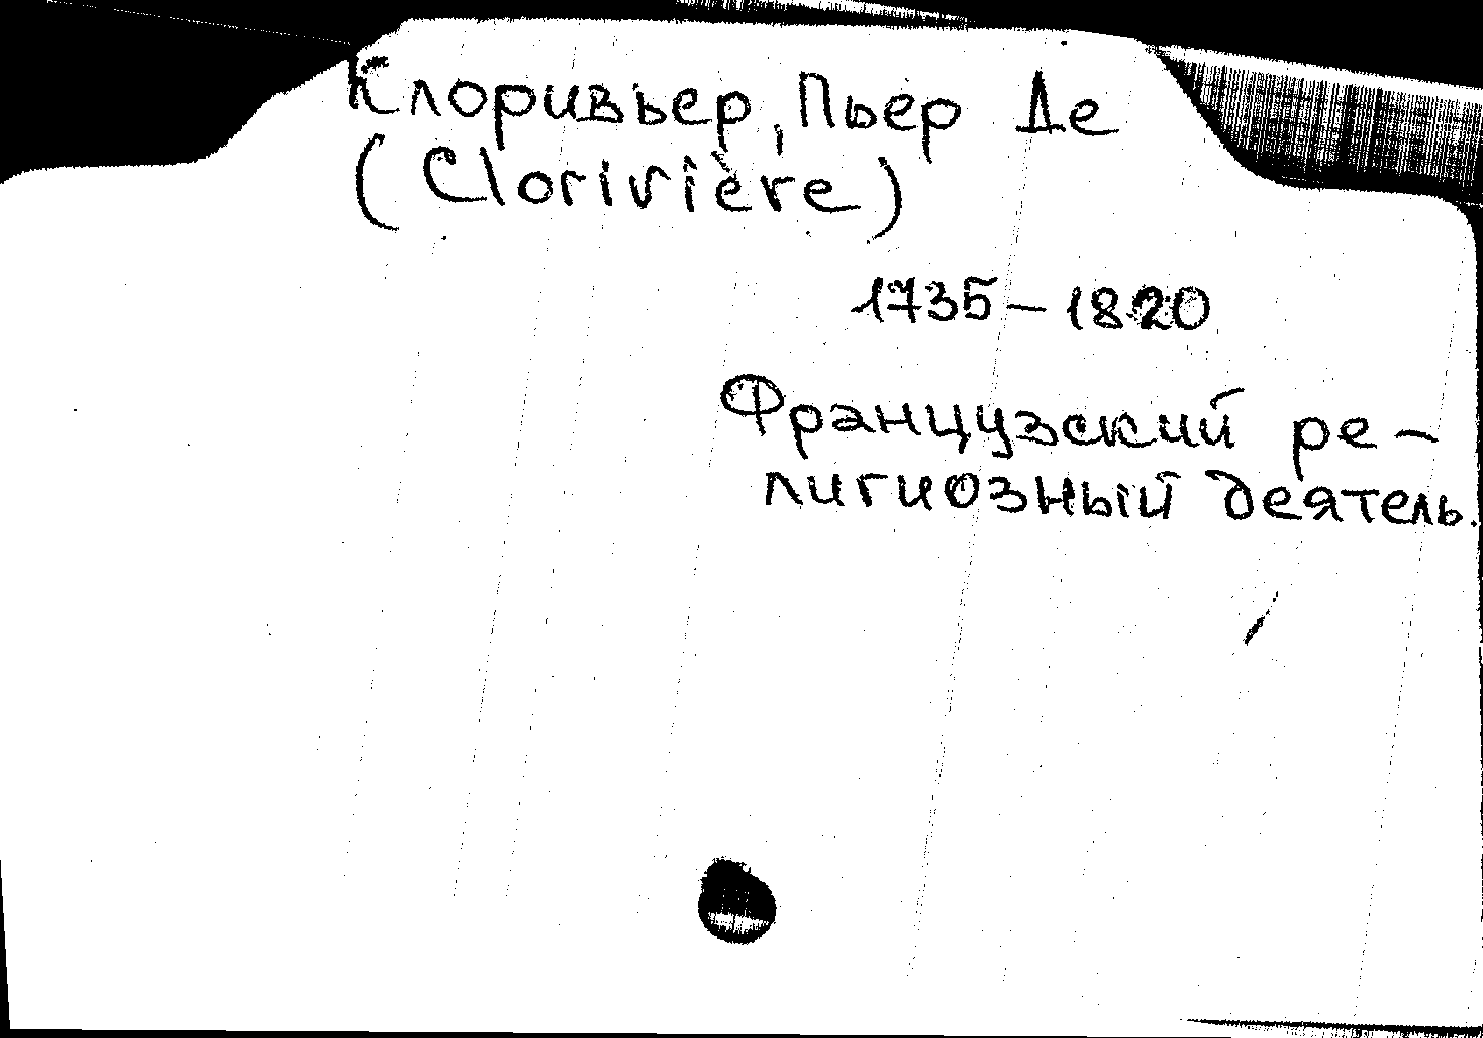 Клоривьер, Пьер Де
(Clorivière)
1735 – 1820
Французский ре-
лигиозный деятель.